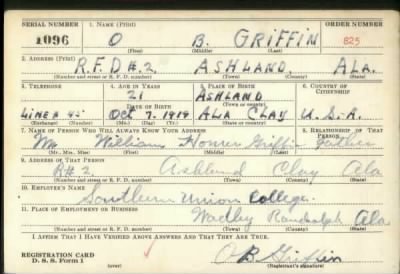 SERIAL NUMBER 1. NAME (Print) ORDER NUMBER
1096 O B. GRIFFIN 825
(First) (Middle) (Last)
2. ADDRESS (Print)
R.F.D #2. ASHLAND, ALA.
(Number and street or R. F. D. number) (Town) (County) (State)
3. TELEPHONE 4. AGE IN YEARS 5. PLACE OF BIRTH 6. COUNTRY OF CITIZENSHIP
21 ASHLAND
DATE OF BIRTH (Town or county)
LINE A 45 OCT 7. 1919 ALA CLAY U.S.A.
(Exchange) (Number) (Mo.) (Day) (Yr.) (State or country)
7. NAME OF PERSON WHO WILL ALWAYS KNOW YOUR ADDRESS 8. RELATIONSHIP OF THAT PERSON
Mr. William Homer Griffin Father
(Mr., Mrs., Miss) (First) (Middle) (Last)
9. ADDRESS OF THAT PERSON
R#2. Ashland Clay Ala
(Number and street or R. F. D. number) (Town) (County) (State)
10. EMPLOYER'S NAME
Southern Union College.
11. PLACE OF EMPLOYMENT OR BUSINESS
Wadley Randolph Ala
(Number and street or R. F. D. number) (Town) (County) (State)
I AFFIRM THAT I HAVE VERIFIED ABOVE ANSWERS AND THAT THEY ARE TRUE.
REGISTRATION CARD
D. S. S. Form 1
O B. Griffin
(Registrant's signature)